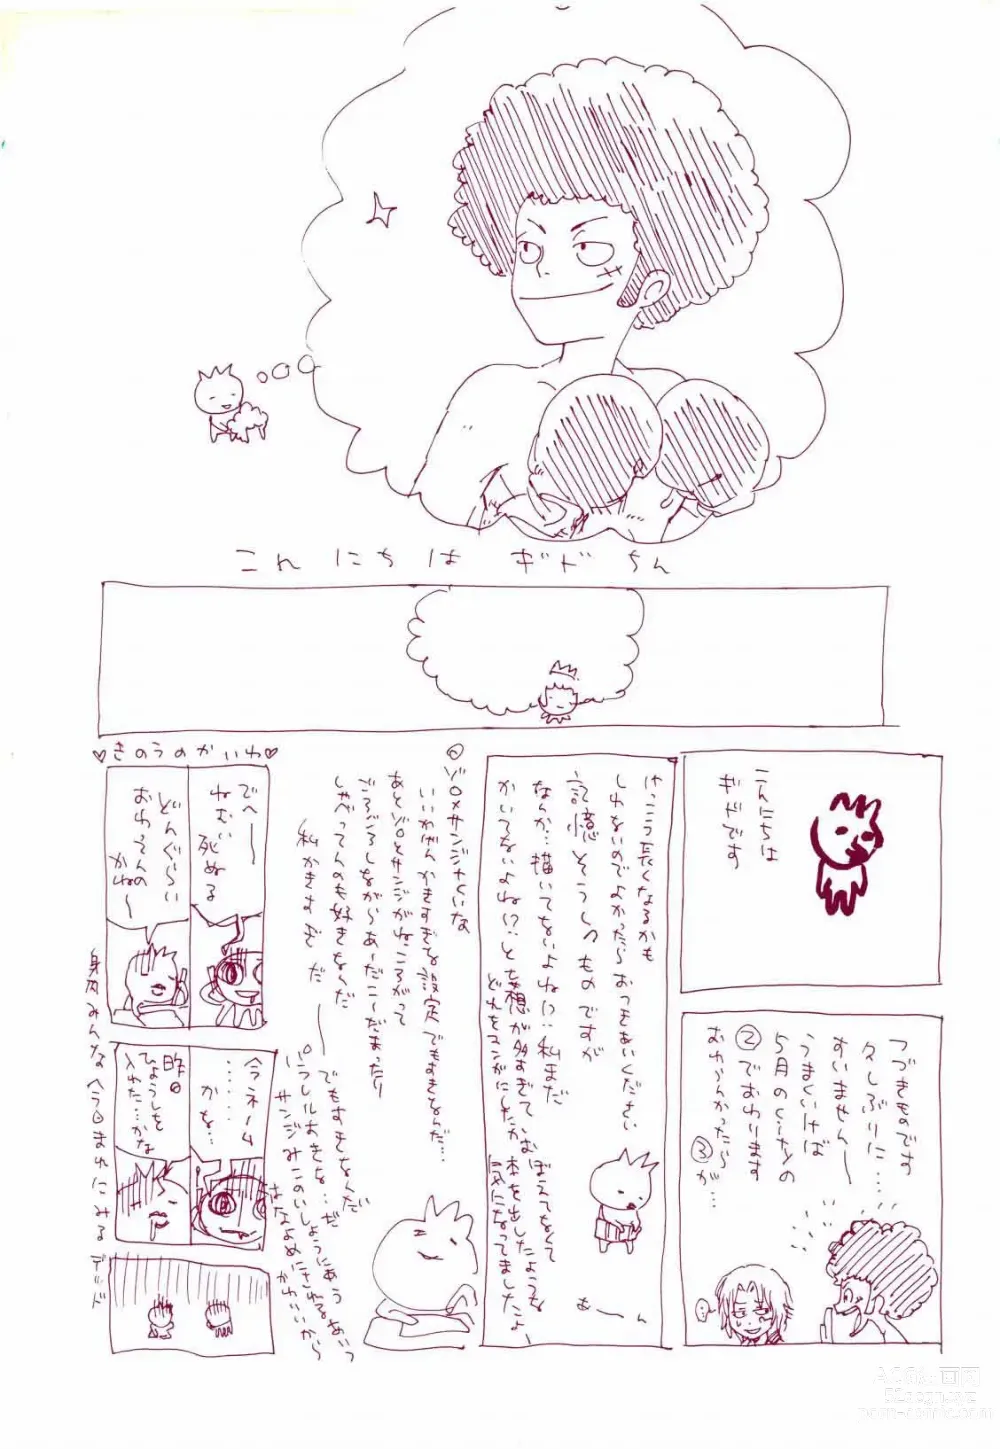 こんにちは ギドちん
こんにちは
ギドです
つづきものです
久しぶりに…
すいません〜
うまくいけば
5月のぐだぐだの
②でおわります
おわらんかったら
③が…
けっこう長くなるかも
しれないのでよかったらおつきあいください
記憶そうしつものですが
なんか…描いてないよね!?:私まだ
かいてないよね!?と妄想が多すぎておぼえてなくて
どれをマンガにしたか本を出したような
気になってましたよ
む〜ん
ゾロ×サンジみたいな
いいかげんかきすぎな設定でもすきなんだ…
あとゾロとサンジがねころがって
ごろごろしながらあーだこーだまったり
しゃべってんのも好きなんだ
(私かきすぎだ
でもすきなんだ
パラレルおきよ…だ
♡きのうのかいわ♡
でへ〜
ねむい死ぬる
どんぐらい
おわってんの
かね〜
今ネーム
……
かな…
昨日
ひょうしを
入れた…かな
身内みんな今日まれにみるデッド
ACG漫画网